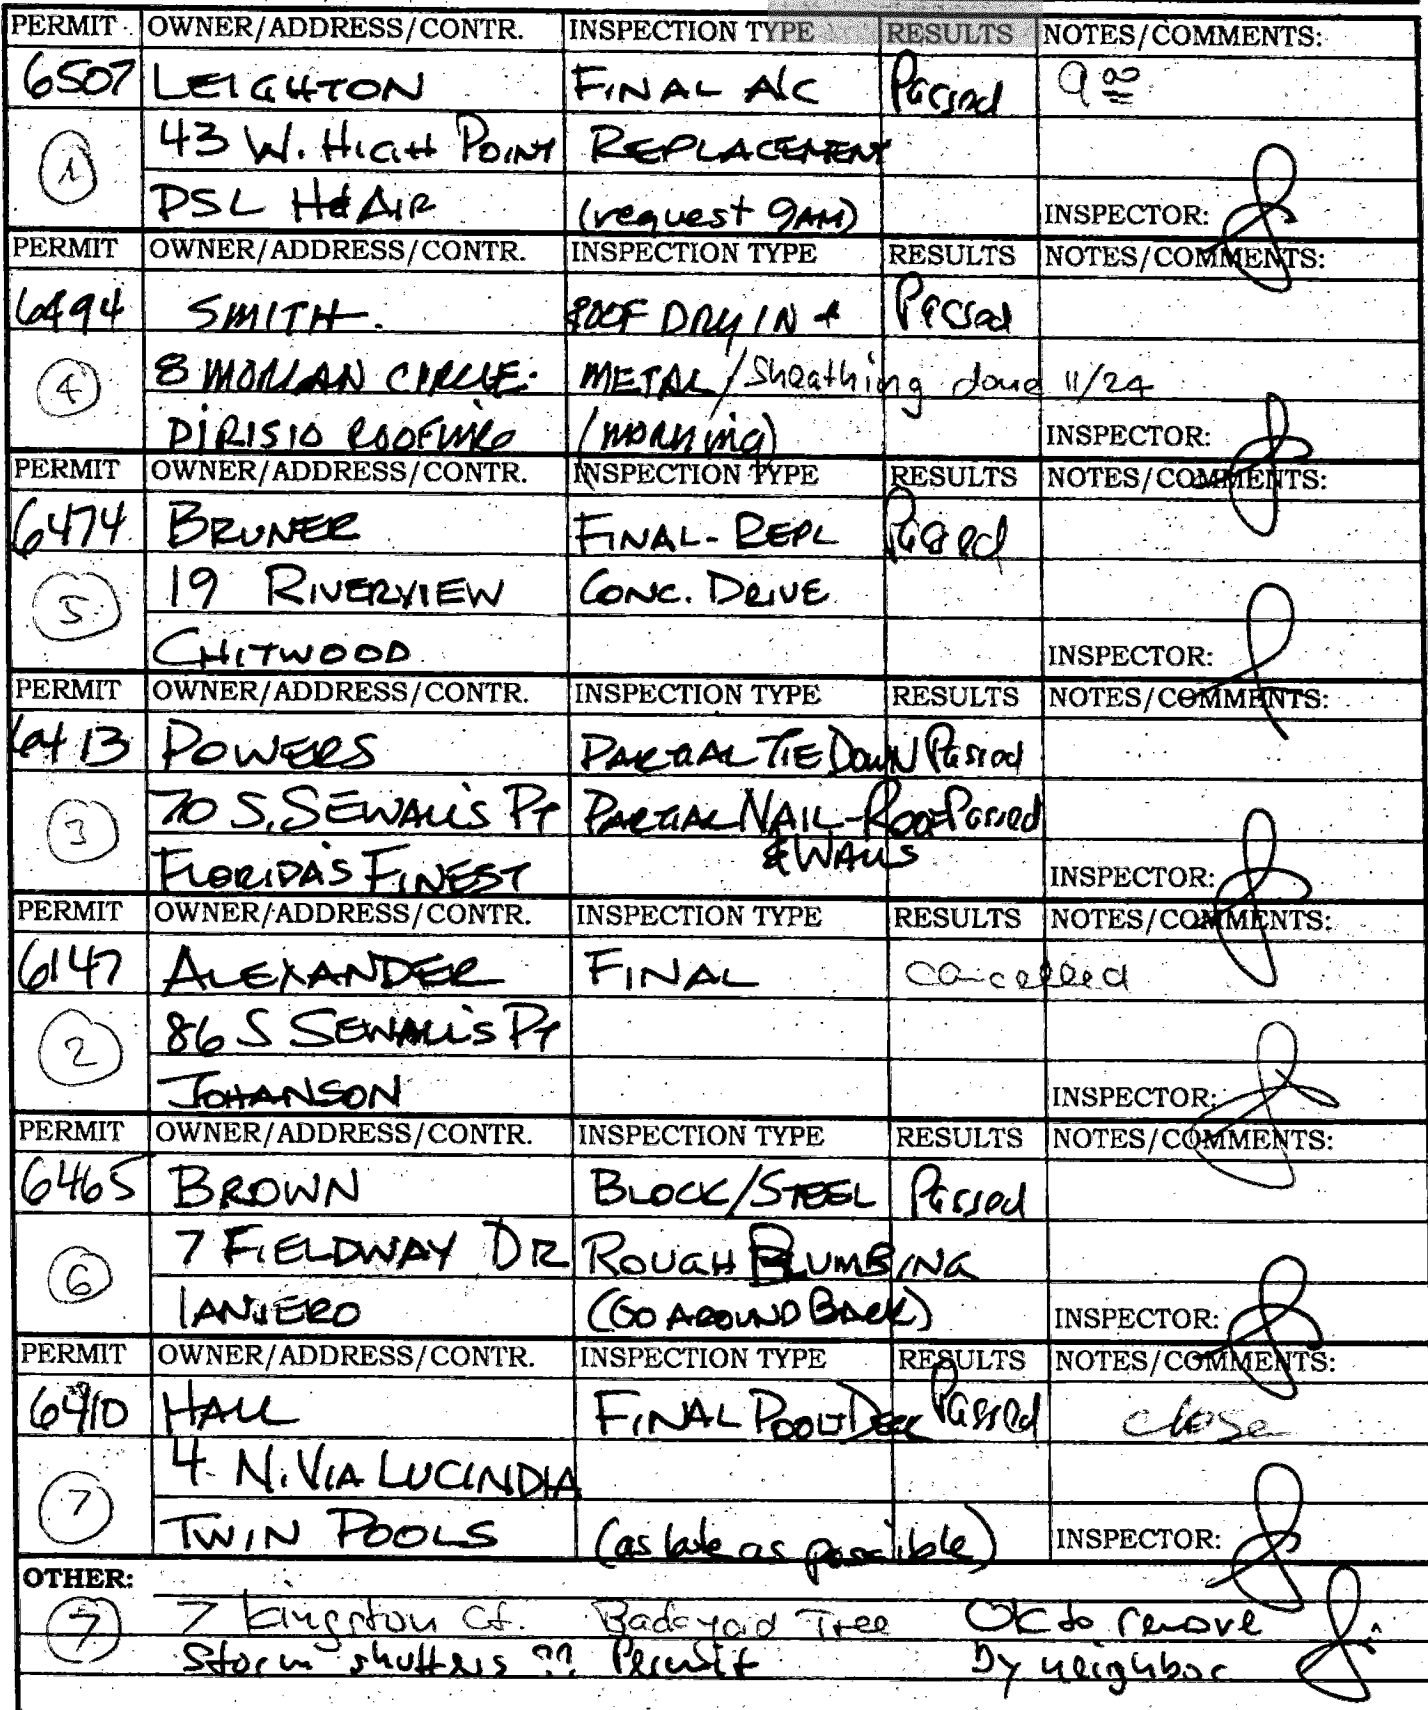 PERMIT OWNER/ADDRESS/CONTR. INSPECTION TYPE RESULTS NOTES/COMMENTS:
6507 LEIGHTON FINAL A/C Passed 9 00
1 43 W. HIGH POINT REPLACEMENT
PSL H&AIR (request 9AM) INSPECTOR:
PERMIT OWNER/ADDRESS/CONTR. INSPECTION TYPE RESULTS NOTES/COMMENTS:
6494 SMITH ROOF DRY IN + Passed
4 8 MORGAN CIRCLE. METAL/Sheathing done 11/24
DIRISIO ROOFING (MORNING) INSPECTOR:
PERMIT OWNER/ADDRESS/CONTR. INSPECTION TYPE RESULTS NOTES/COMMENTS:
6474 BRUNER FINAL-REPL Passed
5 19 RIVERVIEW CONC. DRIVE
CHITWOOD INSPECTOR:
PERMIT OWNER/ADDRESS/CONTR. INSPECTION TYPE RESULTS NOTES/COMMENTS:
6413 POWERS PARTIAL TIE DOWN Passed
3 70 S. SEWALL'S PT PARTIAL NAIL-ROOF Passed
FLORIDA'S FINEST & WALLS INSPECTOR:
PERMIT OWNER/ADDRESS/CONTR. INSPECTION TYPE RESULTS NOTES/COMMENTS:
6147 ALEXANDER FINAL Cancelled
2 86 S SEWALL'S PT
JOHANSON INSPECTOR:
PERMIT OWNER/ADDRESS/CONTR. INSPECTION TYPE RESULTS NOTES/COMMENTS:
6465 BROWN BLOCK/STEEL Passed
6 7 FIELDWAY DR ROUGH PLUMBING
IANIERO (GO AROUND BACK) INSPECTOR:
PERMIT OWNER/ADDRESS/CONTR. INSPECTION TYPE RESULTS NOTES/COMMENTS:
6410 HALL FINAL POOL+DECK Passed close
7 4 N. VIA LUCINDIA
TWIN POOLS (as late as possible) INSPECTOR:
OTHER:
7 7 Kingston Ct. Backyard Tree OK to remove
Storm shutters ?? Permit by neighbor